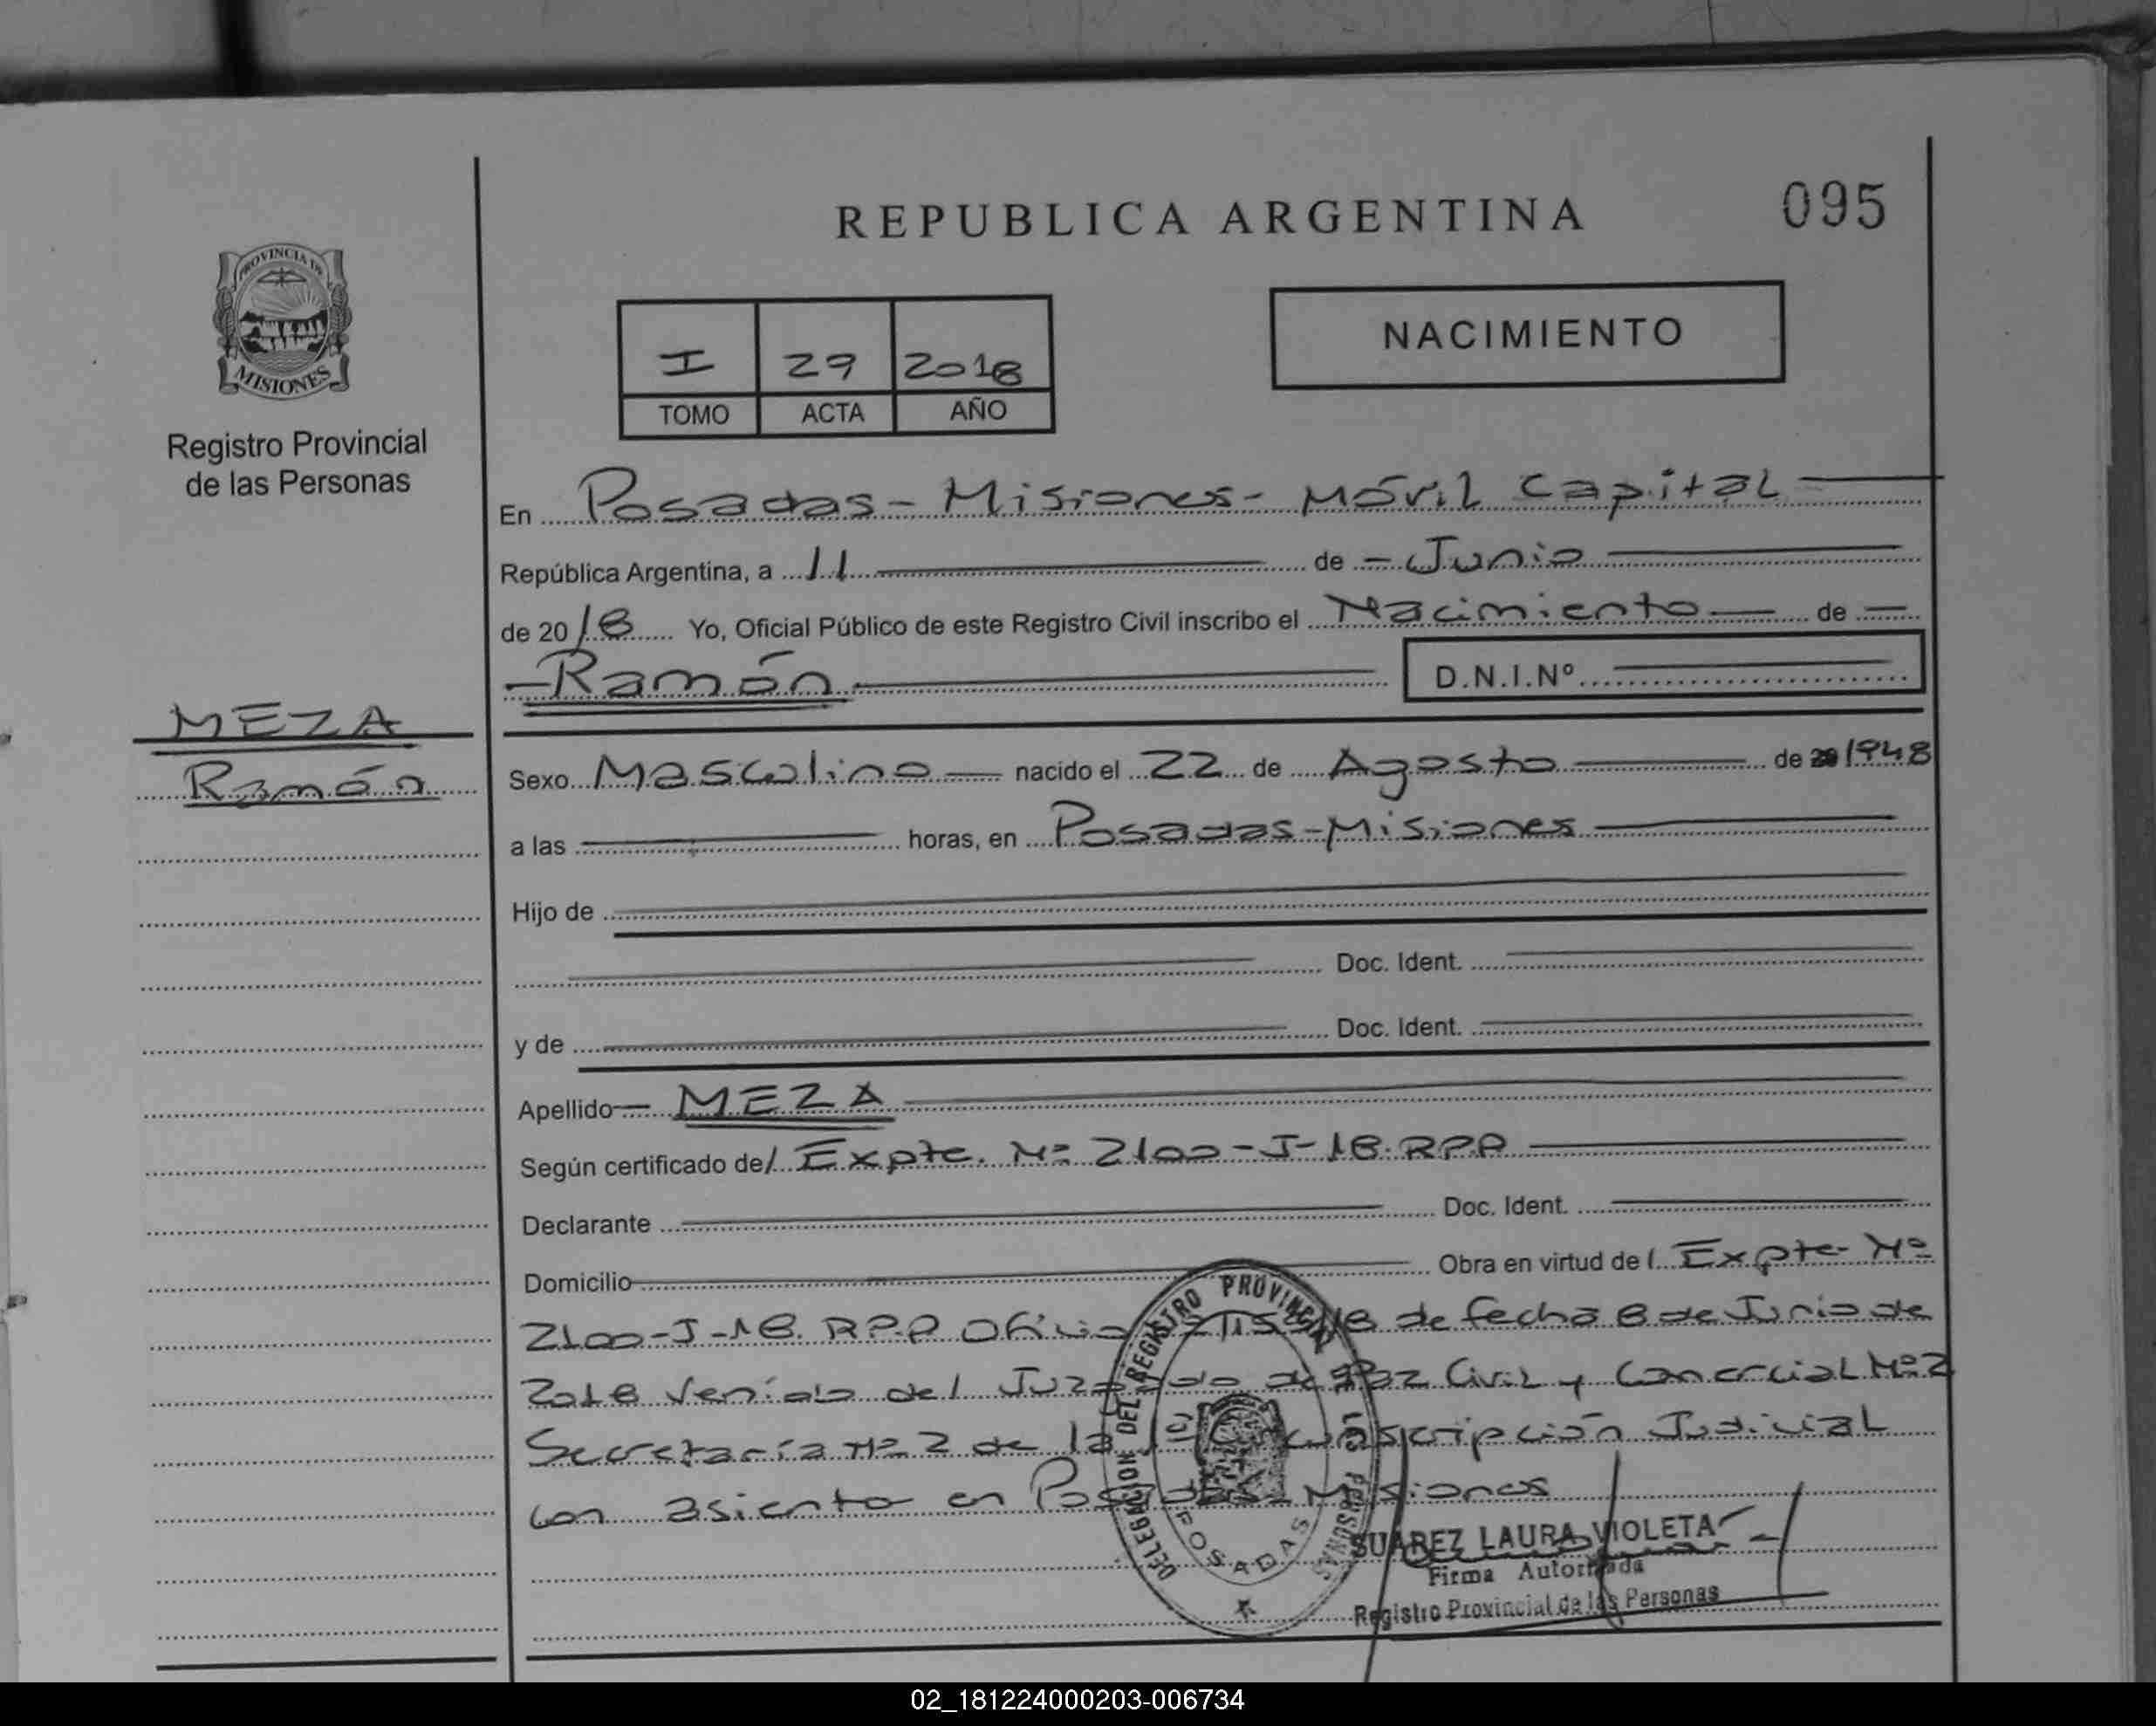 REPUBLICA ARGENTINA
095
PROVINCIA DE
MISIONES
Registro Provincial
de las Personas
I 29 2018
TOMO ACTA AÑO
NACIMIENTO
En Posadas - Misiones - Móvil Capital
República Argentina, a 11 de - Junio
de 2018 Yo, Oficial Público de este Registro Civil inscribo el Nacimiento de
- Ramón
D.N.I.Nº
MEZA
Ramón
Sexo Masculino nacido el 22 de Agosto de 1948
a las horas, en Posadas - Misiones
Hijo de
Doc. Ident.
y de Doc. Ident.
Apellido MEZA
Según certificado de/ Expte. Nº 2100-J-18 RPP
Declarante Doc. Ident.
Domicilio Obra en virtud de/ Expte Nº
2100-J-18 RPP Oficio de fecha 8 de Junio de
2018 Venido del Juzgado de Paz Civil y Comercial Nº2
Secretaría Nº 2 de la 1ª Circunscripción Judicial
con asiento en Posadas Misiones
DELEGACION DEL REGISTRO PROVINCIAL DE LAS PERSONAS
POSADAS
SUAREZ LAURA VIOLETA
Firma Autorizada
Registro Provincial de las Personas
02_181224000203-006734